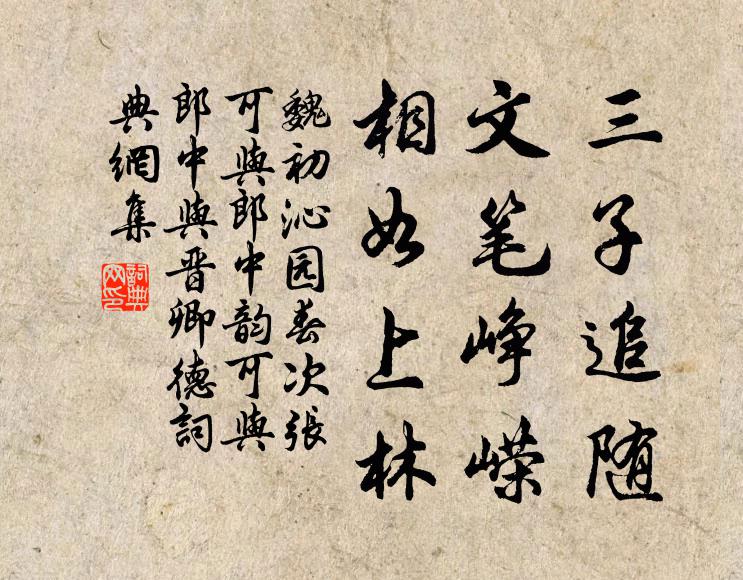 三子追随
文笔峥嵘
相如上林
魏初沁园春次張
可與郎中韵可與
郎中與晋卿德詞
典網集
詞典
网印